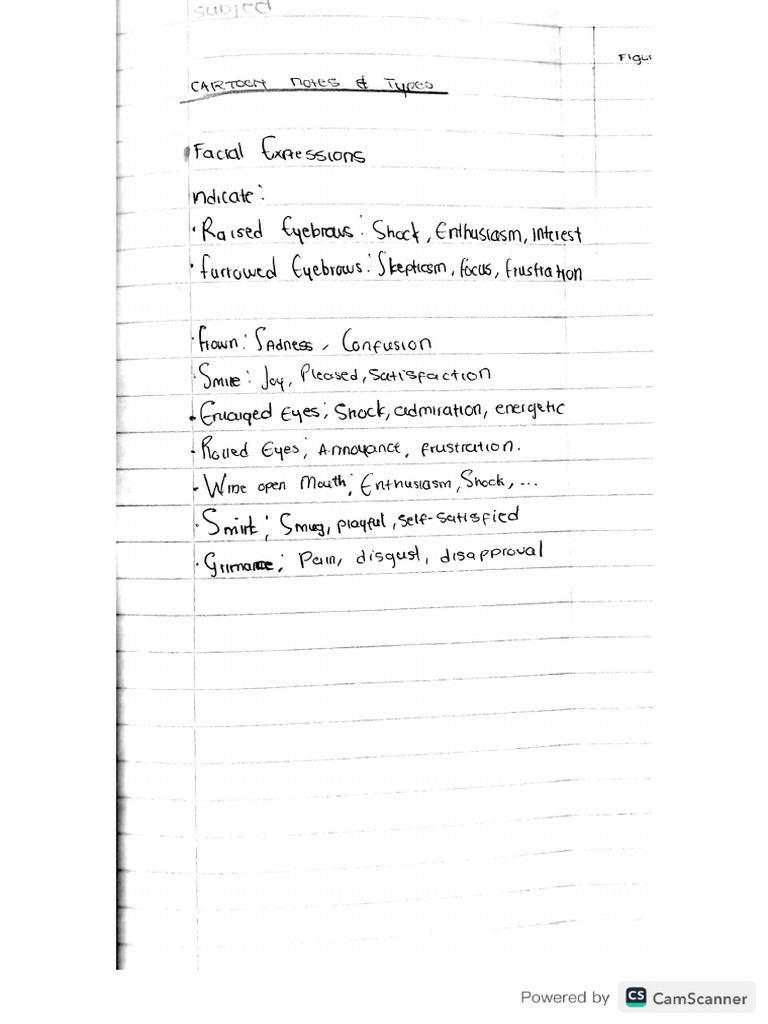 Subject
Figu
CARTOON notes & Types
Facial Expressions
indicate:
· Raised Eyebrows: Shock, Enthusiasm, interest
· furrowed Eyebrows: Skepticsm, focus, frustration
· frown: SAdness, Confusion
· Smile: Joy, Pleased, Satisfaction
· Enlarged Eyes; Shock, admiration, energetic
· Rolled Eyes; Annoyance, frustration.
- Wide open Mouth; Enthusiasm, Shock, ...
· Smirk; Smug, playful, self-satisfied
· Grimance; Pain, disgust, disapproval
Powered by CS CamScanner